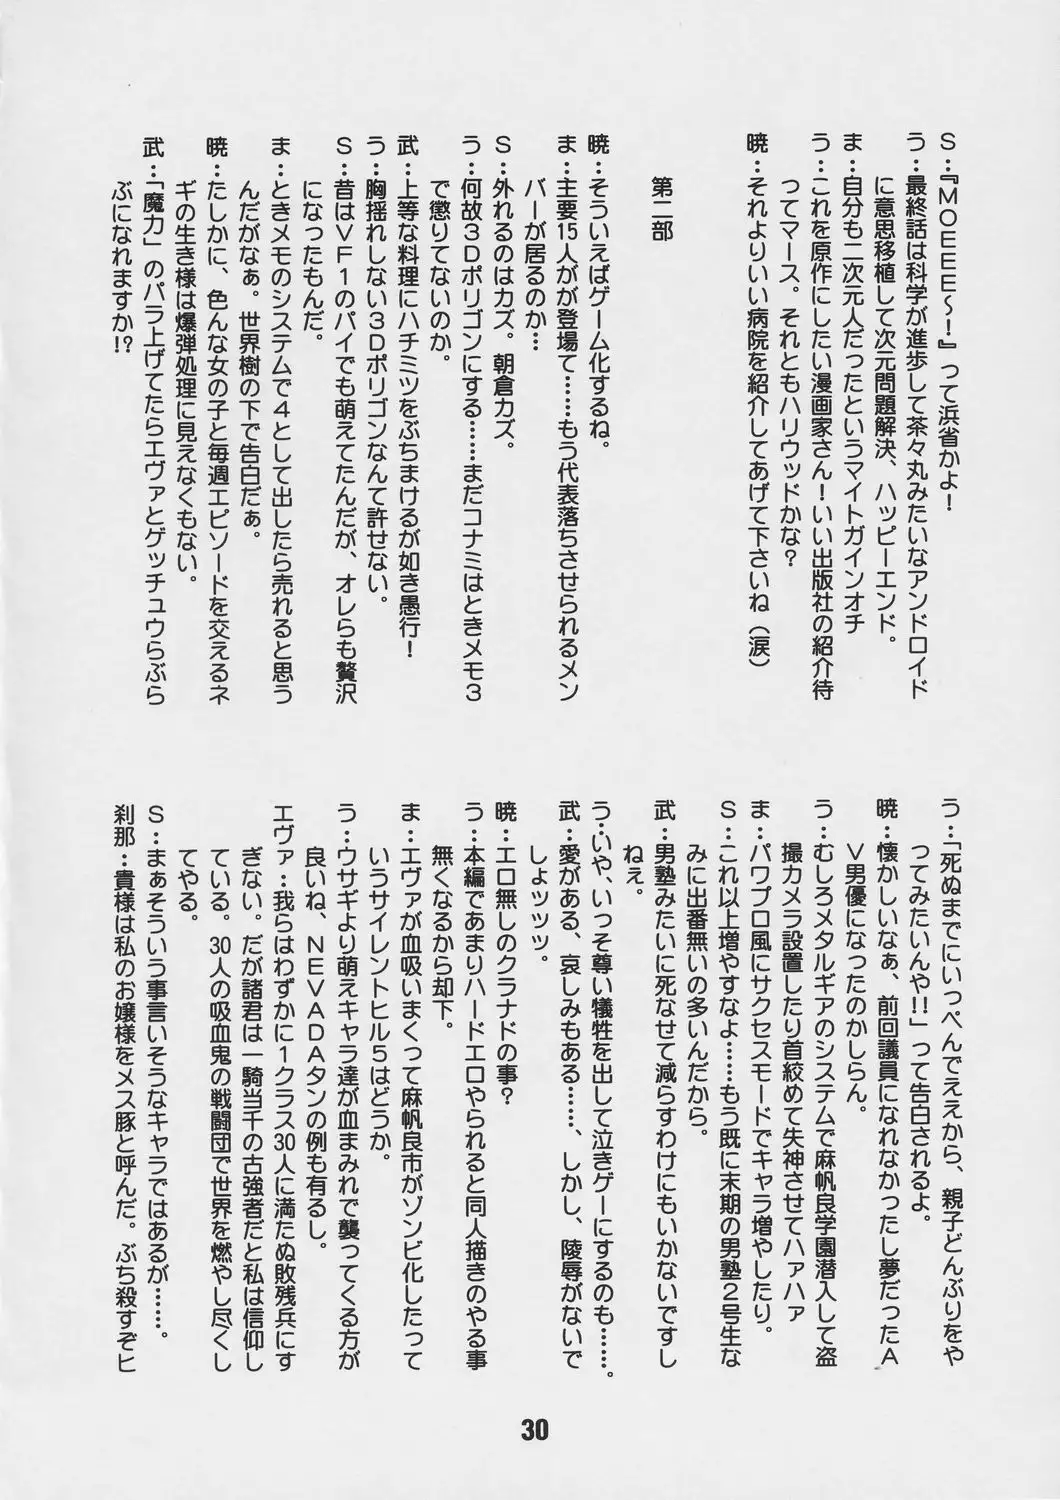 S：『ＭＯＥＥＥ～！』って浜省かよ！
う：最終話は科学が進歩して茶々丸みたいなアンドロイド
に意思移植して次元問題解決、ハッピーエンド。
ま：自分も二次元人だったというマイトガインオチ
う：これを原作にしたい漫画家さん！いい出版社の紹介待
ってマース。それともハリウッドかな？
暁：それよりいい病院を紹介してあげて下さいね（涙）
第二部
暁：そういえばゲーム化するね。
ま：主要15人がが登場て……もう代表落ちさせられるメン
バーが居るのか…
S：外れるのはカズ。朝倉カズ。
う：何故３Ｄポリゴンにする……まだコナミはときメモ３
で懲りてないのか。
武：上等な料理にハチミツをぶちまけるが如き愚行！
う：胸揺れしない３Ｄポリゴンなんて許せない。
S：昔はＶＦ１のパイでも萌えてたんだが、オレらも贅沢
になったもんだ。
ま：ときメモのシステムで４として出したら売れると思う
んだがなぁ。世界樹の下で告白だぁ。
暁：たしかに、色んな女の子と毎週エピソードを交えるネ
ギの生き様は爆弾処理に見えなくもない。
武：「魔力」のパラ上げてたらエヴァとゲッチュウらぶら
ぶになれますか!?
う：「死ぬまでにいっぺんでええから、親子どんぶりをや
ってみたいんや!!」って告白されるよ。
暁：懐かしいなぁ、前回議員になれなかったし夢だったＡ
Ｖ男優になったのかしらん。
う：むしろメタルギアのシステムで麻帆良学園潜入して盗
撮カメラ設置したり首絞めて失神させてハァハァ
ま：パワプロ風にサクセスモードでキャラ増やしたり。
S：これ以上増やすなよ……もう既に末期の男塾２号生な
みに出番無いの多いんだから。
武：男塾みたいに死なせて減らすわけにもいかないですし
ねぇ。
う：いや、いっそ尊い犠牲を出して泣きゲーにするのも……。
武：愛がある、哀しみもある……、しかし、陵辱がないで
しょッッッ。
暁：エロ無しのクラナドの事？
う：本編であまりハードエロやられると同人描きのやる事
無くなるから却下。
ま：エヴァが血吸いまくって麻帆良市がゾンビ化したって
いうサイレントヒル５はどうか。
う：ウサギより萌えキャラ達が血まみれで襲ってくる方が
良いね、ＮＥＶＡＤＡタンの例も有るし。
エヴァ：我らはわずかに１クラス30人に満たぬ敗残兵にす
ぎない。だが諸君は一騎当千の古強者だと私は信仰し
ている。30人の吸血鬼の戦闘団で世界を燃やし尽くし
てやる。
S：まぁそういう事言いそうなキャラではあるが……。
刹那：貴様は私のお嬢様をメス豚と呼んだ。ぶち殺すぞヒ
30